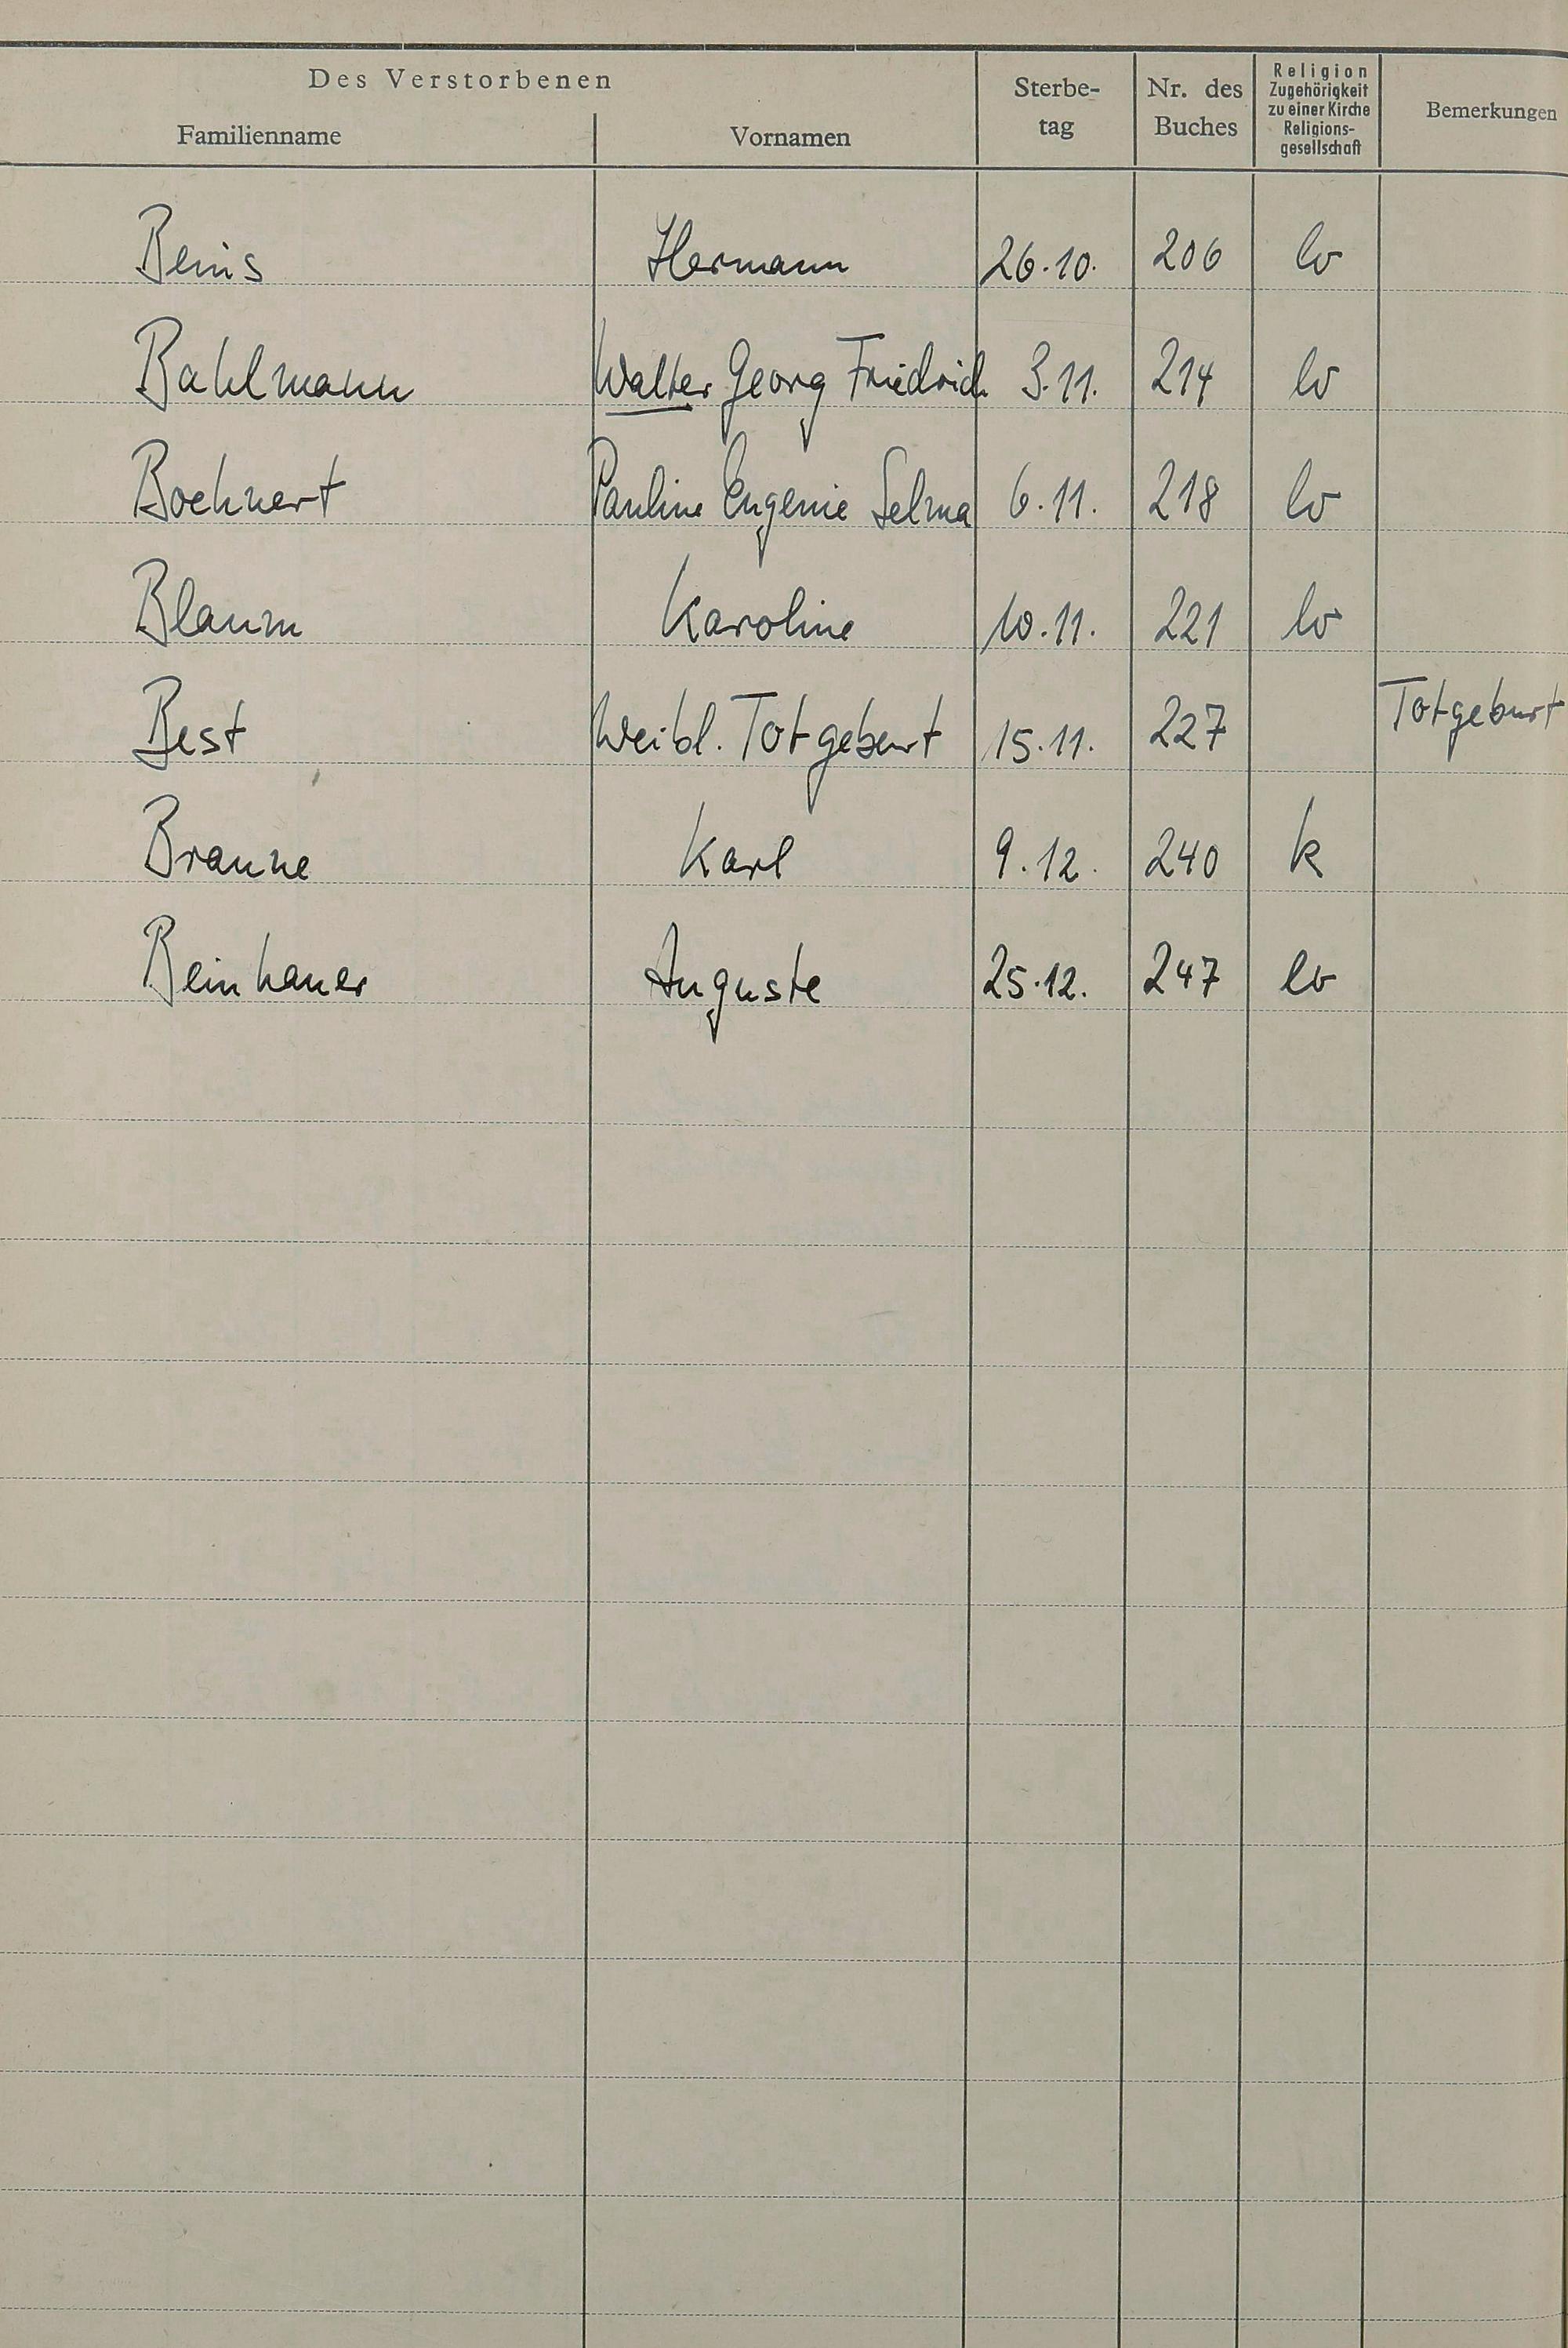 Des Verstorbenen
Familienname Vornamen Sterbe-tag Nr. des Buches Religion Zugehörigkeit zu einer Kirche Religions-gesellschaft Bemerkungen
Beins Hermann 26.10. 206 lv
Bahlmann Walter Georg Friedrich 3.11. 214 lv
Boehnert Pauline Eugenie Selma 6.11. 218 lv
Blaum Karoline 10.11. 221 lv
Best Weibl. Totgeburt 15.11. 227 Totgeburt
Braune Karl 9.12. 240 k
Beinhauer Auguste 25.12. 247 lv